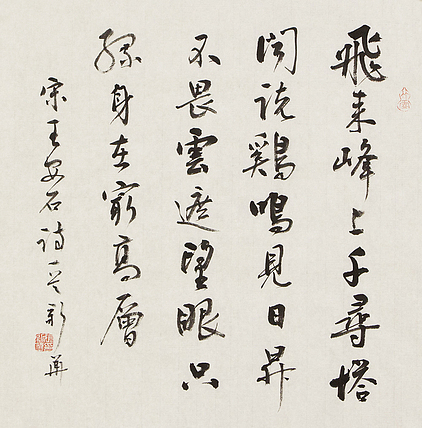 飛来峰上千尋塔
聞説鷄鳴見日昇
不畏雲遮望眼只
緣身在最高層
宋王安石詩一首